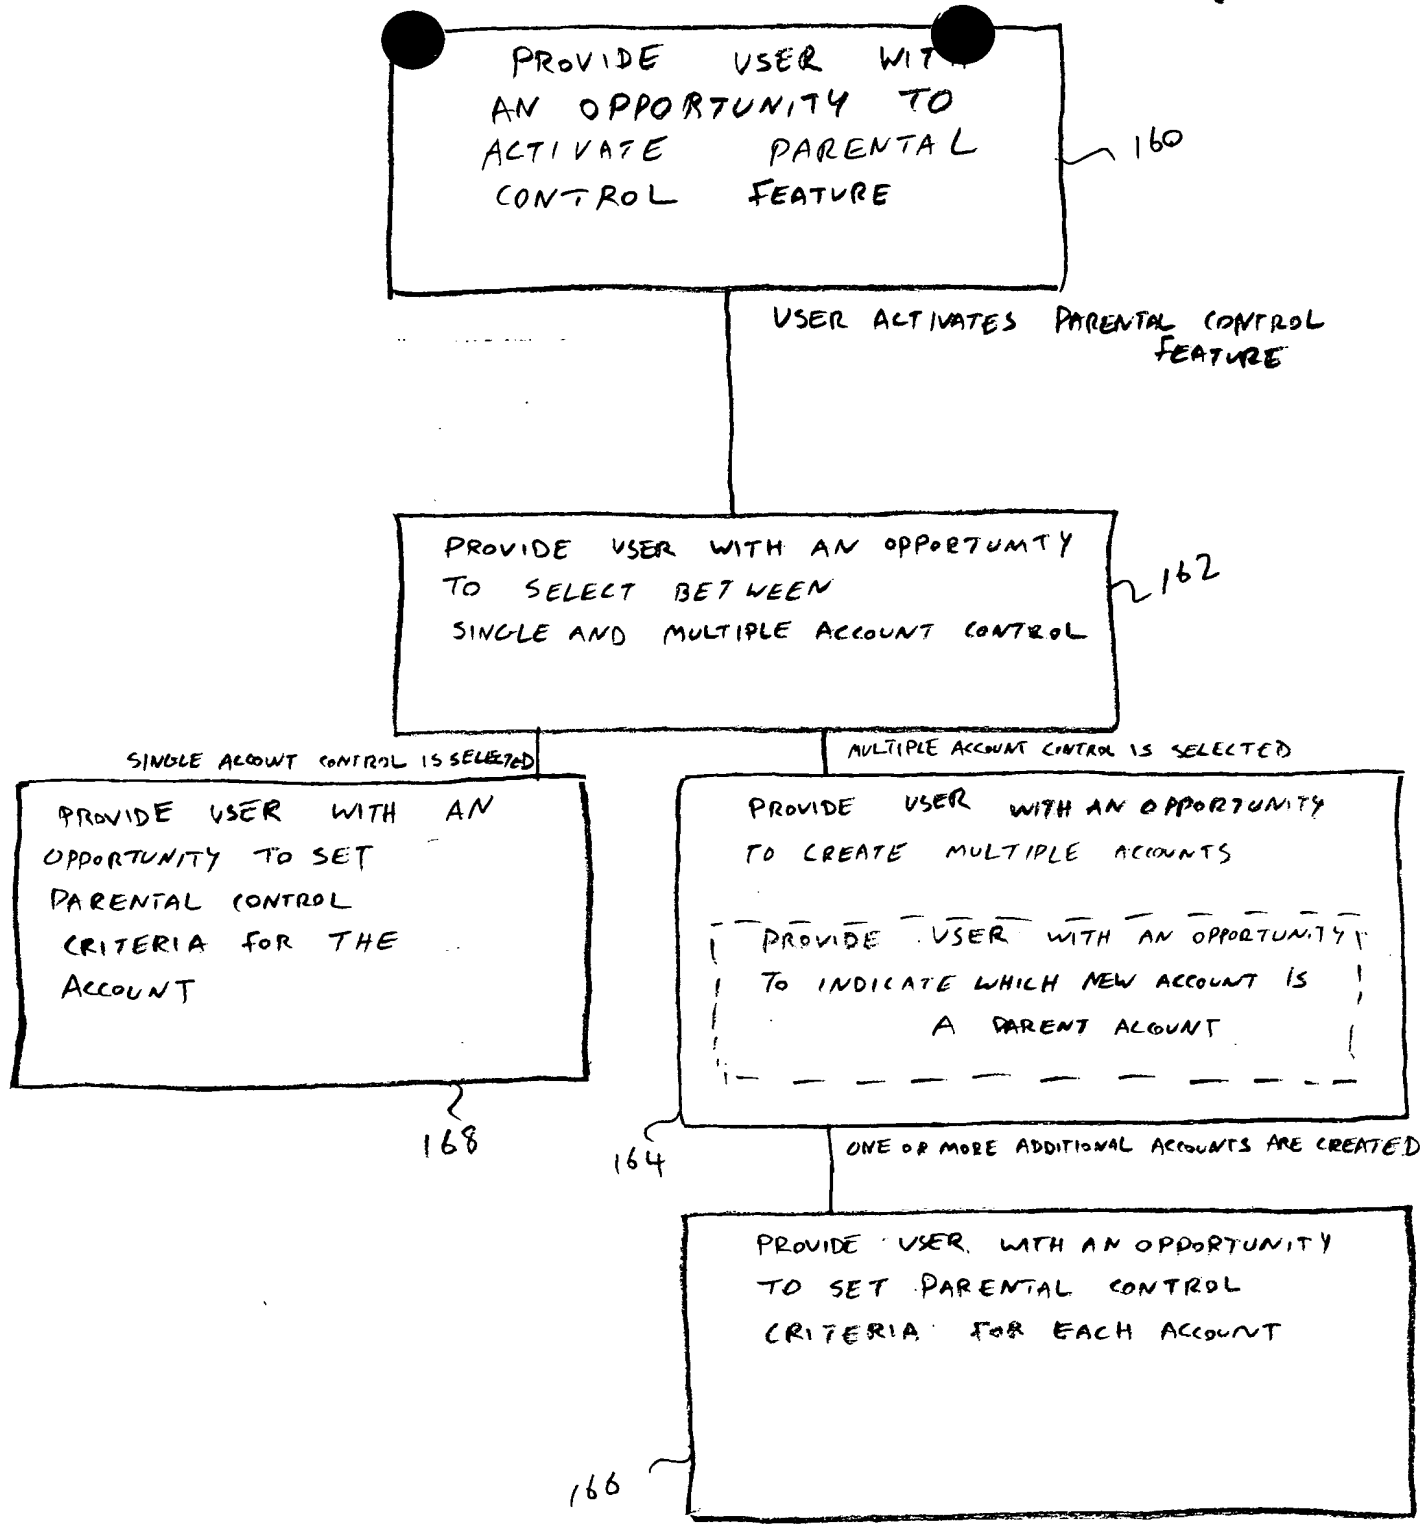 PROVIDE USER WITH
AN OPPORTUNITY TO
ACTIVATE PARENTAL
CONTROL FEATURE
160
USER ACTIVATES PARENTAL CONTROL
FEATURE
PROVIDE USER WITH AN OPPORTUNITY
TO SELECT BETWEEN
SINGLE AND MULTIPLE ACCOUNT CONTROL
162
SINGLE ACCOUNT CONTROL IS SELECTED
MULTIPLE ACCOUNT CONTROL IS SELECTED
PROVIDE USER WITH AN
OPPORTUNITY TO SET
PARENTAL CONTROL
CRITERIA FOR THE
ACCOUNT
168
PROVIDE USER WITH AN OPPORTUNITY
TO CREATE MULTIPLE ACCOUNTS
PROVIDE USER WITH AN OPPORTUNITY
TO INDICATE WHICH NEW ACCOUNT IS
A PARENT ACCOUNT
164
ONE OR MORE ADDITIONAL ACCOUNTS ARE CREATED
PROVIDE USER WITH AN OPPORTUNITY
TO SET PARENTAL CONTROL
CRITERIA FOR EACH ACCOUNT
166